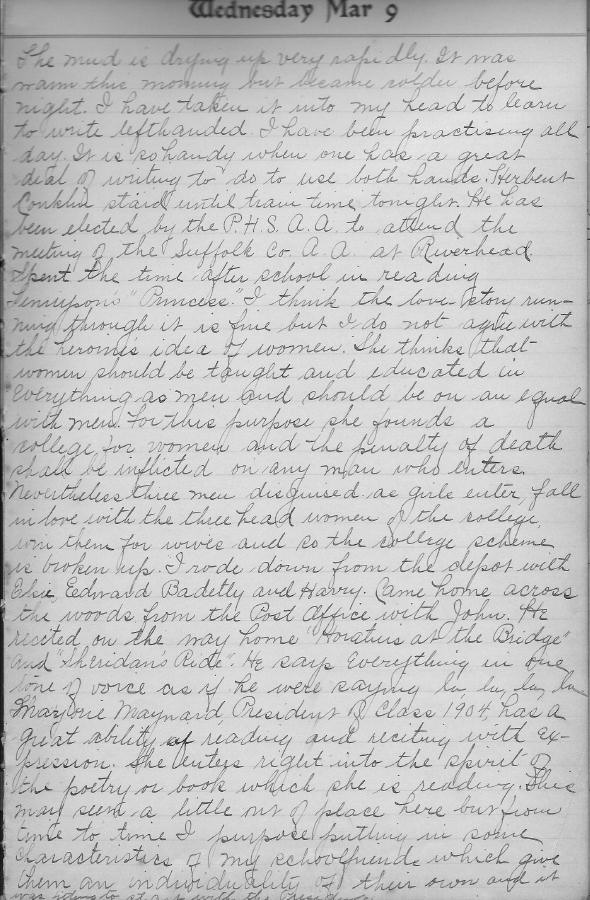 Wednesday Mar 9
The mud is drying up very rapidly. It was
warm this morning but became colder before
night. I have taken it into my head to learn
to write lefthanded. I have been practising all
day. It is so handy when one has a great
deal of writing to do to use both hands. Herbert
Conklin staid until train time tonight. He has
been elected by the P.H.S.A.A. to attend the
meeting of the Suffolk Co. A.A. at Riverhead.
Spent the time after school in reading
Tennyson's "Princess." I think the love story run-
ning through it is fine but I do not agree with
the heroine's idea of women. She thinks that
women should be taught and educated in
everything as men and should be on an equal
with men. For this purpose she founds a
college for women and the penalty of death
shall be inflicted on any man who enters.
Nevertheless three men disguised as girls enter, fall
in love with the three head women of the college,
win them for wives and so the college scheme
is broken up. I rode down from the depot with
Elsie, Eedward and Harry. Came home across
the woods from the Post Office with John. He
recited on the way home "Horatius at the Bridge"
and "Sheridan's Ride". He says everything in one
tone of voice as if he were saying la, la, la, la
Marjorie Maynard, President of Class 1904, has a
great ability of reading and reciting with ex-
pression. She enters right into the spirit of
the poetry or book which she is reading. This
may seem a little out of place here but from
time to time I purpose putting in some
characteristics of my schoolfriends which give
them an individuality of their own and it